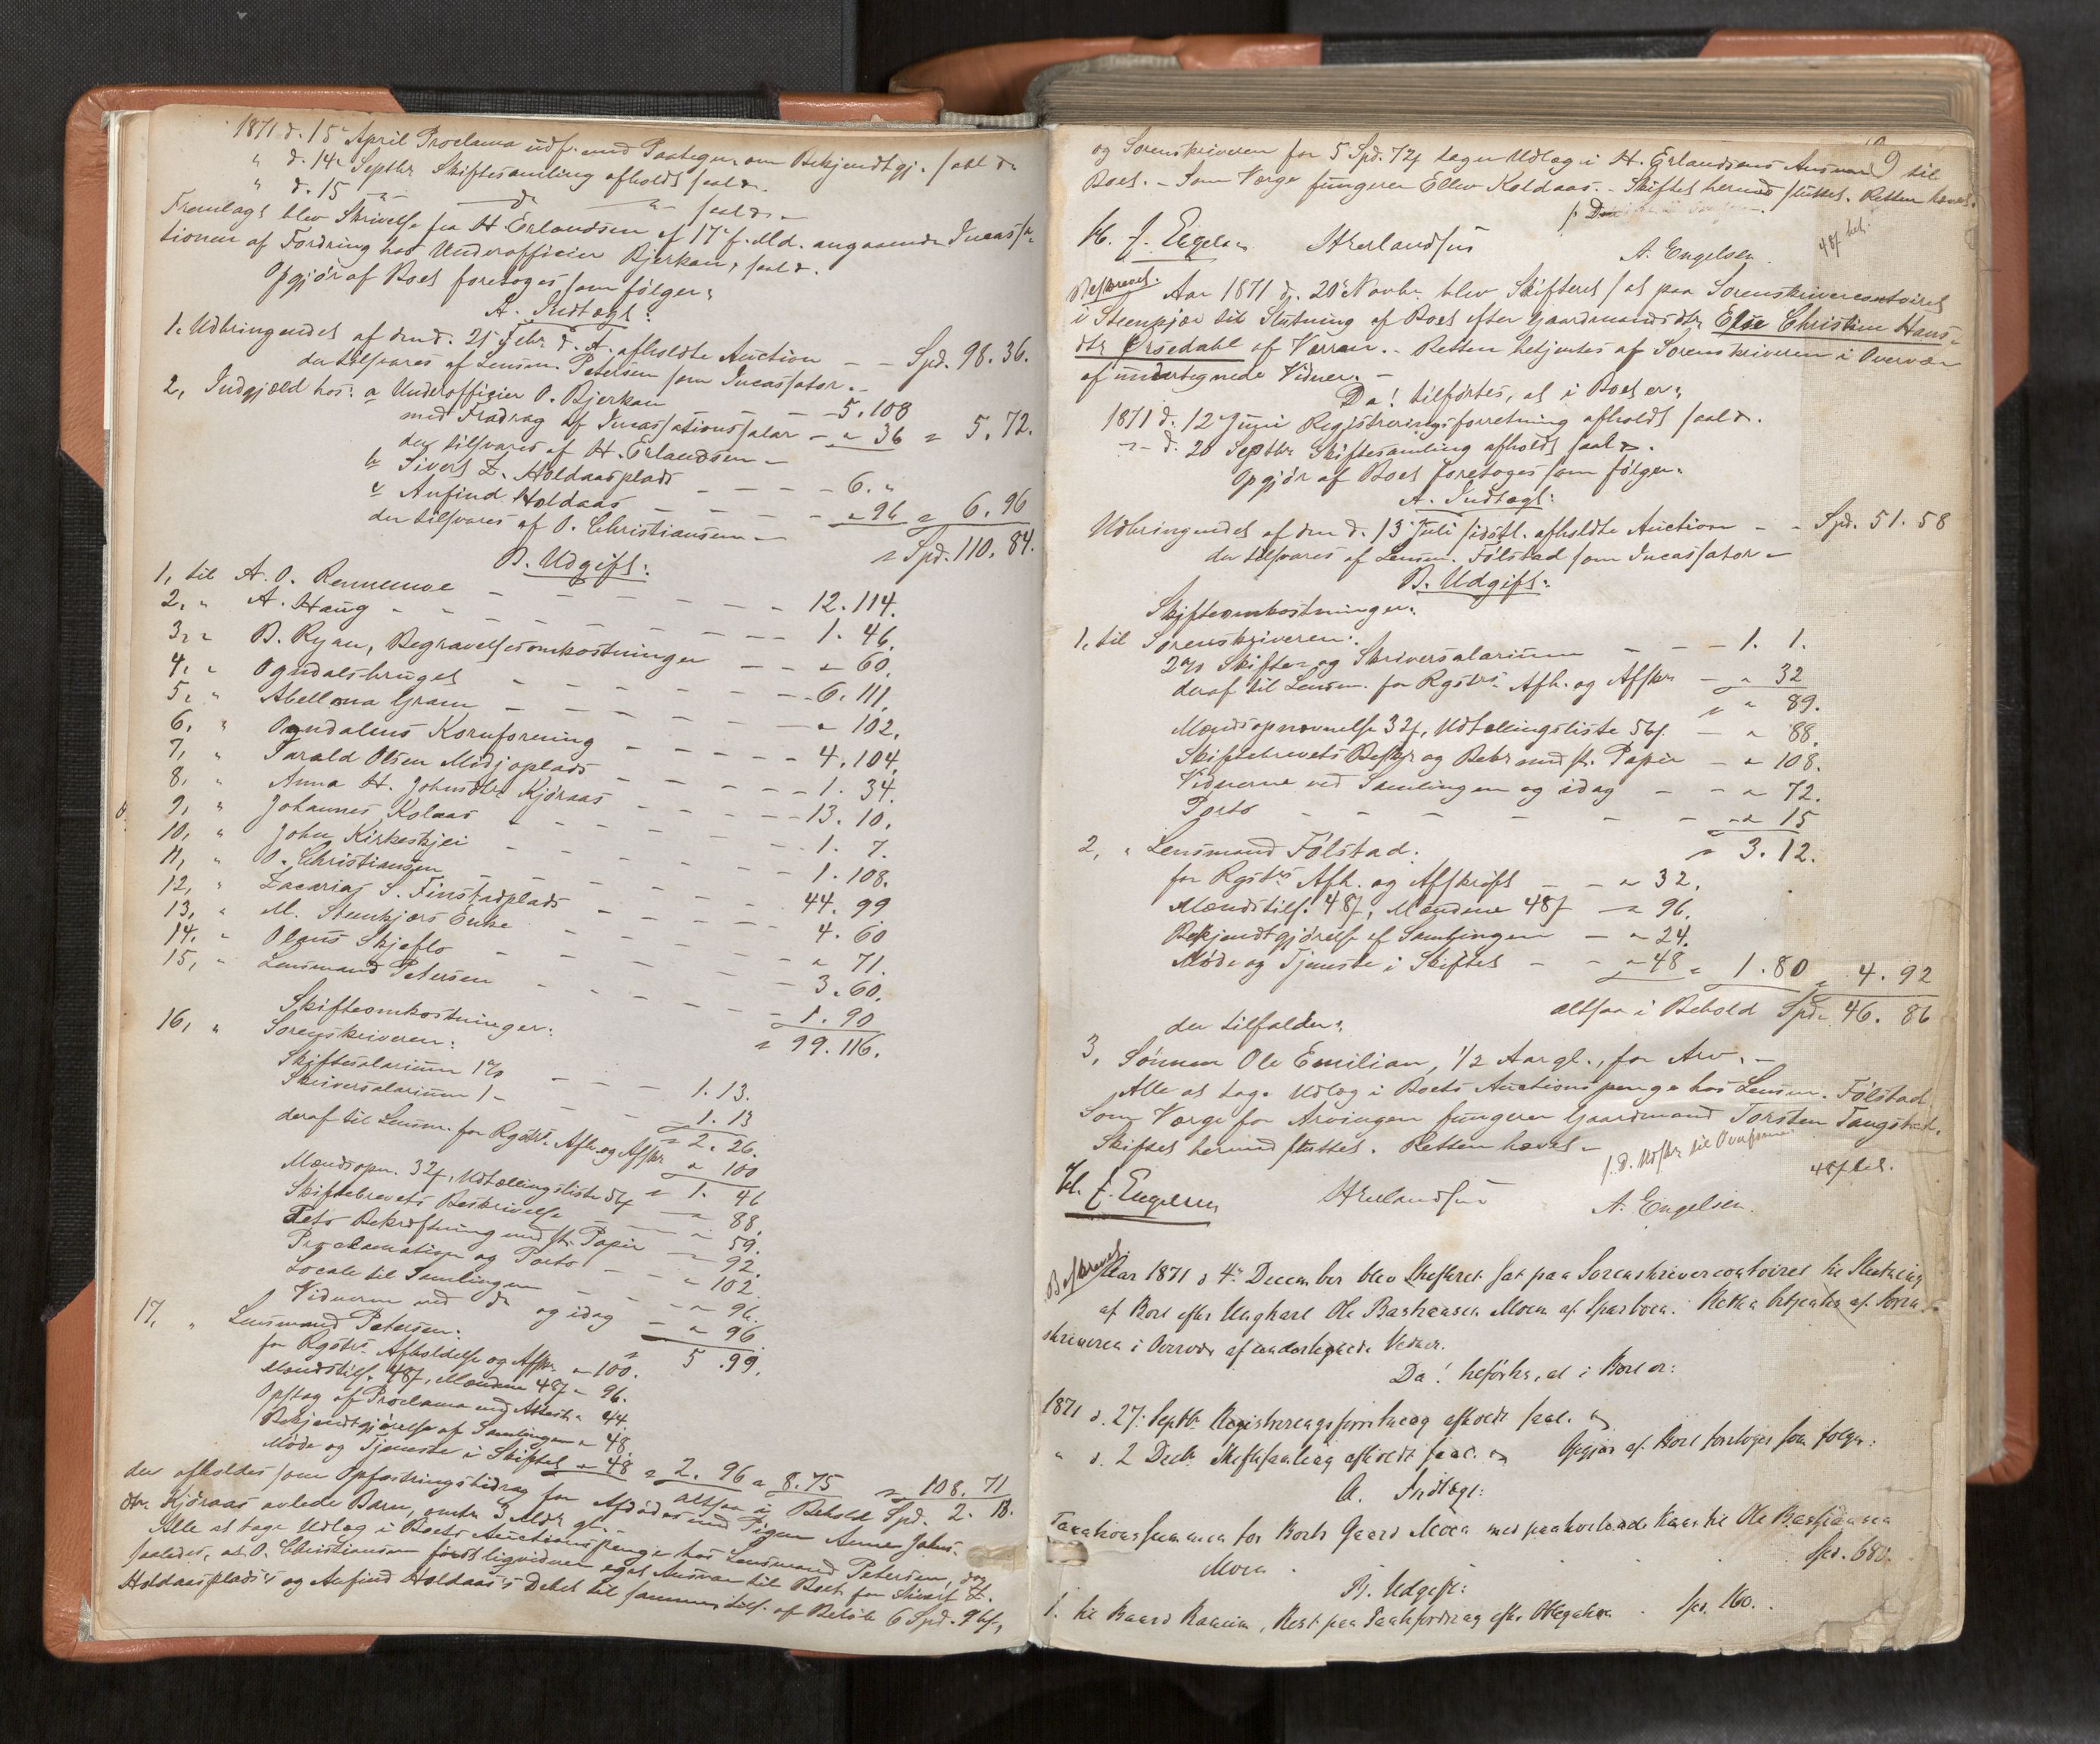 1871 d. 15 April Proclama udf. med Paategn. om Bekjendtgj. saal. d.
" d. 14 Septbr Skiftesamling afholdt saal. d.
" d. 15 — " — d — " — saal. d.
Fremlagt blev Skrivelse fra H Erlandsen af 17 f. Md. angaaende Incassa-
tionen af Fordring hos Underofficier Bjerkan, saal. d.
Opgjør af Boet foretoges som følger:
A. Indtægt:
1. Udbringendet af den d. 25 Febr d. A. afholdte Auction — — Spd. 98. 36.
der tilsvares af Lensm. Petersen som Incassator. —
2, Indgjæld hos: a Underofficier O. Bjerkan — — — 5. 108
med Fradrag af Incassationssalar — " 36 = 5. 72.
der tilsvares af H. Erlandsen —
b Sivert Z. Holdaasplads — — — — 6. "
c Anfind Holdaas — — — — " 96 = 6. 96
der tilsvares af O. Christiansen —
= Spd. 110. 84.
B. Udgift:
1, til A. O. Rennemoe — — — — — 12. 114.
2. " A. Haug — — — — — 1. 46.
3, " B. Ryan, Begravelsesomkostninger — — " 60.
4. " Ogndalsbruget — — — — — 6. 111.
5. " Abellona Gram — — — — — " 102.
6. " Ogndalens Kornforening — — — — 4. 104.
7, " Tarald Olsen Midjoplads — — — — 1. 34.
8. " Anna H. Johnsdtr Kjöraas — — — — 13. 10.
9, " Johannes Kolaas — — — — — 1. 7.
10, " John Kirkeskjei — — — — — 1. 108.
11, " O. Christiansen — — — — — 44. 99
12, " Zacarias S. Finstadplads — — — — 4. 60
13, " M. Stenkjærs Enke — — — — " 71.
14. " Olaus Skjeflo — — — — — 3. 60.
15, " Lensmand Petersen — — — — 1. 90
= 99. 116.
Skifteomkostninger:
16, " Sorenskriveren:
Skiftesalarium 1% — — — 1. 13.
Skriversalarium 1 — — — 1. 13
= 2. 26.
deraf til Lensm. for Rgstr. Afh. og Afskr " 100
= 1. 46
Mændsopn. 32 f, Udtællingsliste 56 f — " 88.
Skiftebrevets Beskrivelse — — " 59.
Dets Bekræftning med st. Papir — " 92.
Proclamation og Porto — — " 102.
Locale til Samlingen — — " 96.
Vidnerne ved do og idag — " 96
= 5. 99.
17, " Lensmand Petersen:
for Rgstr. Afholdelse og Afskr " 100.
Mændstils. 48 f, Mændene 48 f " 96.
Opslag af Proclama med Attest. " 44.
Bekjendtgjörelse af Samlingen " 48.
Möde og Tjeneste i Skiftet " 48 = 2. 96 " 8. 75 = 108. 71
altsaa i Behold Spd. 2. 13.
der afholdes som Opfostringsbidrag for Afdødes med Pigen Anne Johns-
dtr. Kjöraas avlede Barn, omtr 3 Mdr gl. —
Alle at tage Udlæg i Boets Auctionspenge hos Lensmand Petersen, dog
saaledes, at O. Christiansen først ligviderer eget Ansvar til Boet for Sivert Z.
Holdaasplads's og Anfind Holdaas's Debet til sammen tils. af Beløb 6 Spd. 96 f,
9
og Sorenskriveren for 5 Spd. 72 f tager Udlæg i H. Erlandsens Ansvar til
Boet. — Som Værge fungerer Ellev Koldaas. — Skiftet hermed sluttet. Retten hævet.
48 f bet.
Hl. f. Engelsen HErlandsen A. Engelsen.
Beskrevet.
Aar 1871 d. 20 Novbr. blev Skifteret sat paa Sorenskrivercontoiret
i Steenkjær til Slutning af Boet efter Gaardmandsdtr. Else Christine Hans-
dtr Ørsedahl af Værran. — Retten betjentes af Sorenskriveren i Overvær
af undertegnede Vidner. —
Da! tilførtes, at i Boet er:
1871 d. 12 Juni Registreringsforretning afholdt saal. d.
— " — d. 20 Septbr Skiftesamling afholdt saal. d.
Opgjør af Boet foretoges som følger:
A. Indtægt:
Udbringendet af den d. 13 Juli sidstl. afholdte Auction — — Spd. 51. 58
der tilsvares af Lensm. Følstad som Incassator —
B. Udgift:
Skifteomkostninger:
1, til Sorenskriveren:
2% Skifte- og Skriversalarium — — — 1. 1.
deraf til Lensm. for Rgstr. Afh. og Afskr — " 32
= " 89.
Mændsopnævnelse 32 f, Udtællingsliste 56 f. — " 88.
Skiftebrevets Beskr og Bekr med st. Papir — " 108.
Vidnerne ved Samlingen og idag — — " 72.
Porto — — — — — — " 15
= 3. 12.
2, " Lensmand Følstad:
for Rgstr. Afh. og Afskrift — — " 32.
Mændstils. 48 f, Mændene 48 f — " 96.
Bekjendtgjörelse af Samlingen — " 24.
Möde og Tjeneste i Skiftet — — " 48 = 1. 80 = 4. 92
altsaa i Behold Spd. 46. 86
der tilfalder:
3, Sönnen Ole Emilian, 1/2 Aar gl., for Arv. —
Alle at tage Udlæg i Boets Auctionspenge hos Lensm. Følstad
Som Værge for Arvingen fungerer Gaardmand Torsten Tangstad.
Skiftet hermed sluttet. Retten hævet. —
s. D. Udskr til Overformynd
48 f bet.
Hl. f. Engelsen HErlandsen A. Engelsen.
Beskrevet.
Aar 1871 d 4 December blev Skifteret sat paa Sorenskrivercontoiret til Slutning
af Boet efter Ungkarl Ole Bastiansen Moen af Sparboen. Retten betjentes af Soren-
skriveren i Overvær af undertegnede Vidner.
Da! tilførtes, at i Boet er:
1871 d. 27. Septbr. Registreringsforretning afholdt saal. d
" d. 2 Decbr. Skiftesamling afholdt saal. d Opgjør af Boet foretoges som følger:
A. Indtægt:
Taxationssummen for Boets Gaard Moen med paahvilende Kaar til Ole Bastiansen
Moen . . . Spd. 680.
B. Udgift:
1. til Baard Raaum, Rest paa Pantefordring efter Obligation . Spd. 160.